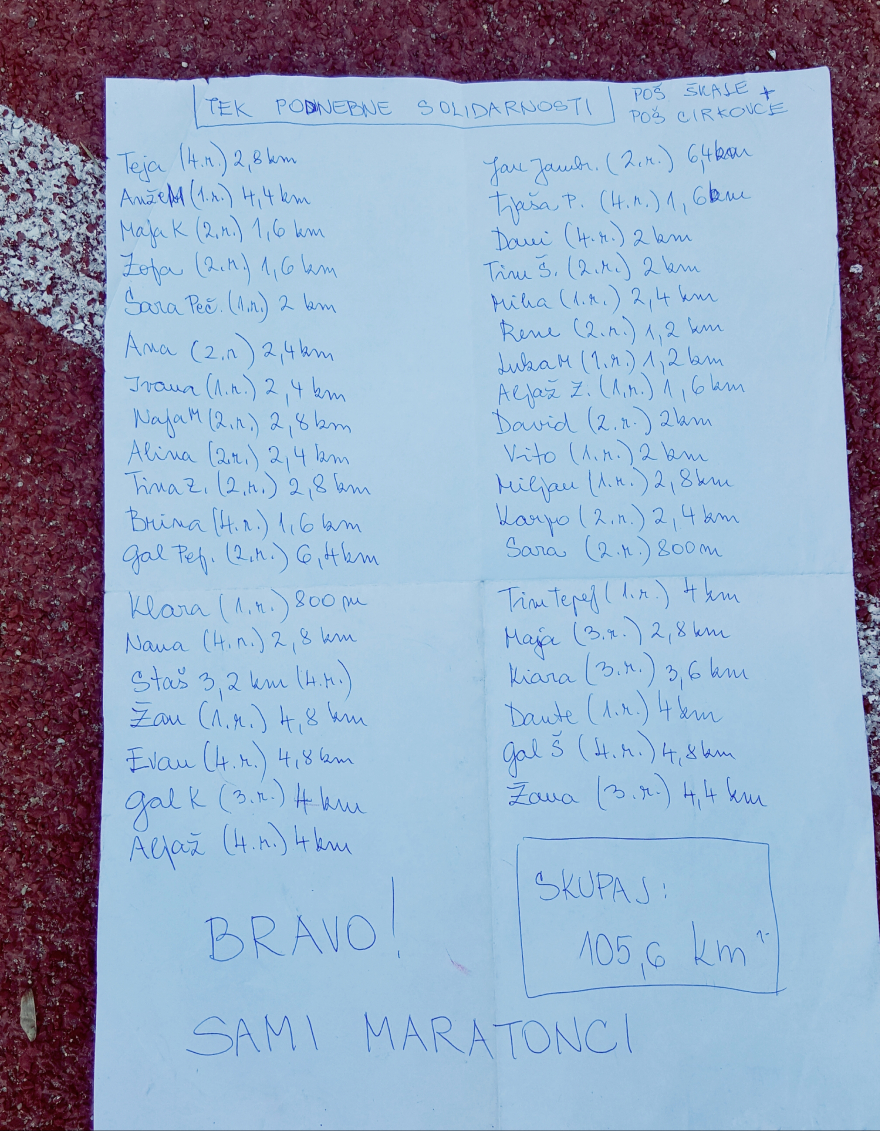 TEK PODNEBNE SOLIDARNOSTI
POŠ ŠKALE +
POŠ CIRKOVCE
Teja (4.r.) 2,8 km
Anže M (1.r.) 4,4 km
Maja K (2.r.) 1,6 km
Zoja (2.r.) 1,6 km
Sara Peč. (1.r.) 2 km
Ana (2.r.) 2,4 km
Ivana (1.r.) 2,4 km
Naja M (2.r.) 2,8 km
Alina (2.r.) 2,4 km
Tina Z. (2.r.) 2,8 km
Brina (4.r.) 1,6 km
Gal Pej. (2.r.) 6,4 km
Klara (1.r.) 800 m
Nana (4.r.) 2,8 km
Staš 3,2 km (4.r.)
Žan (1.r.) 4,8 km
Evan (4.r.) 4,8 km
Gal K (3.r.) 4 km
Aljaž (4.r.) 4 km
Jan Jamb. (2.r.) 6,4 km
Tjaša P. (4.r.) 1,6 km
Davi (4.r.) 2 km
Tim Š. (2.r.) 2 km
Miha (1.r.) 2,4 km
Rene (2.r.) 1,2 km
Luka M (1.r.) 1,2 km
Aljaž Z. (1.r.) 1,6 km
David (2.r.) 2 km
Vito (1.r.) 2 km
Miljan (1.r.) 2,8 km
Karpo (2.r.) 2,4 km
Sara (2.r.) 800 m
Tim Tepej (1.r.) 4 km
Maja (3.r.) 2,8 km
Kiara (3.r.) 3,6 km
Dante (1.r.) 4 km
Gal Š (4.r.) 4,8 km
Žana (3.r.) 4,4 km
SKUPAJ:
105,6 km
BRAVO!
SAMI MARATONCI